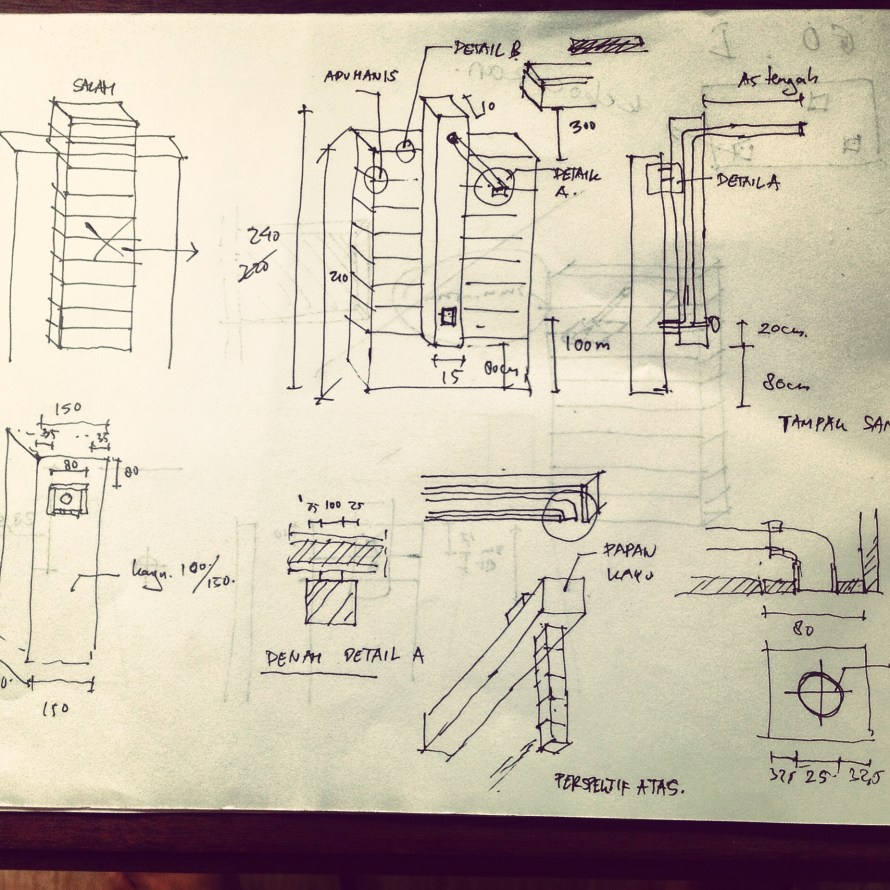 SALAH
DETAIL B
ADUMANIS
10
300
DETAIL
A.
As tengah
DETAIL A
240
220
210
15
80cm
100m
20cm.
80cm
150
35
35
80
80
kayu. 100/150.
150
25 100 25
DENAH DETAIL A
PAPAN
KAYU
PERSPEKTIF ATAS.
80
32,5 25 32,5